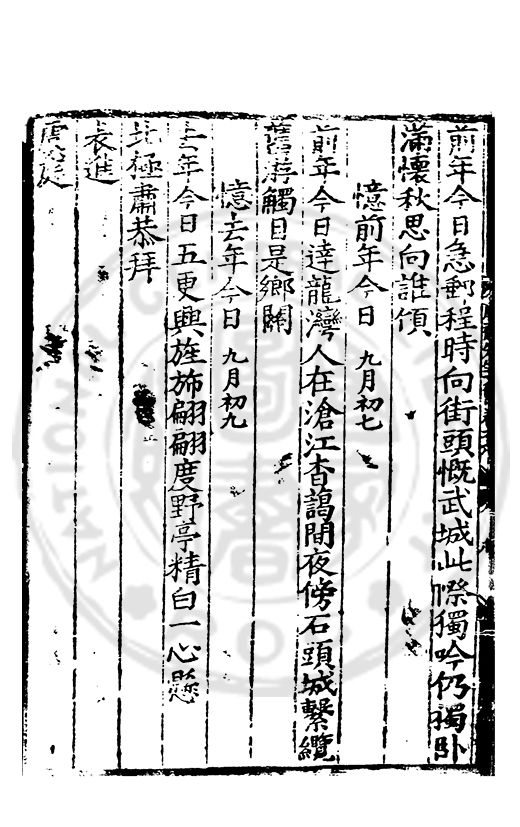 前年今日急郵程時向街頭慨武城此際獨吟仍獨臥
滿懷秋思向誰傾
憶前年今日 九月初七
前年今日達龍灣人在滄江杳藹間夜傍石頭城繫纜
舊游觸目是鄉關
憶去年今日 九月初九
去年今日五更興旌斾翩翩度野亭精白一心懸
北極肅恭拜
表進